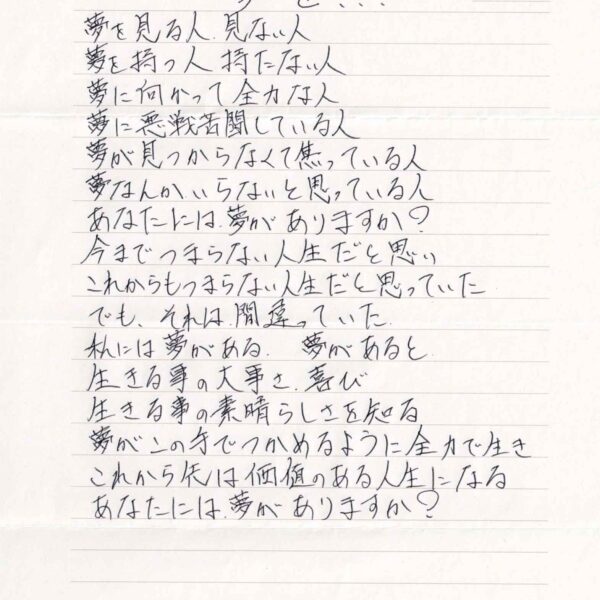 夢を見る人.見ない人
夢を持つ人 持たない人
夢に向かって全力な人
夢に悪戦苦闘している人
夢が見つからなくて焦っている人
夢なんかいらないと思っている人
あなたには.夢がありますか?
今までつまらない人生だと思い
これからもつまらない人生だと思っていた
でも、それは.間違っていた.
私には夢がある. 夢があると.
生きる事の大事さ.喜び
生きる事の素晴らしさを知る
夢がこの手でつかめるように全力で生き
これから先は価値のある人生になる
あなたには.夢がありますか?